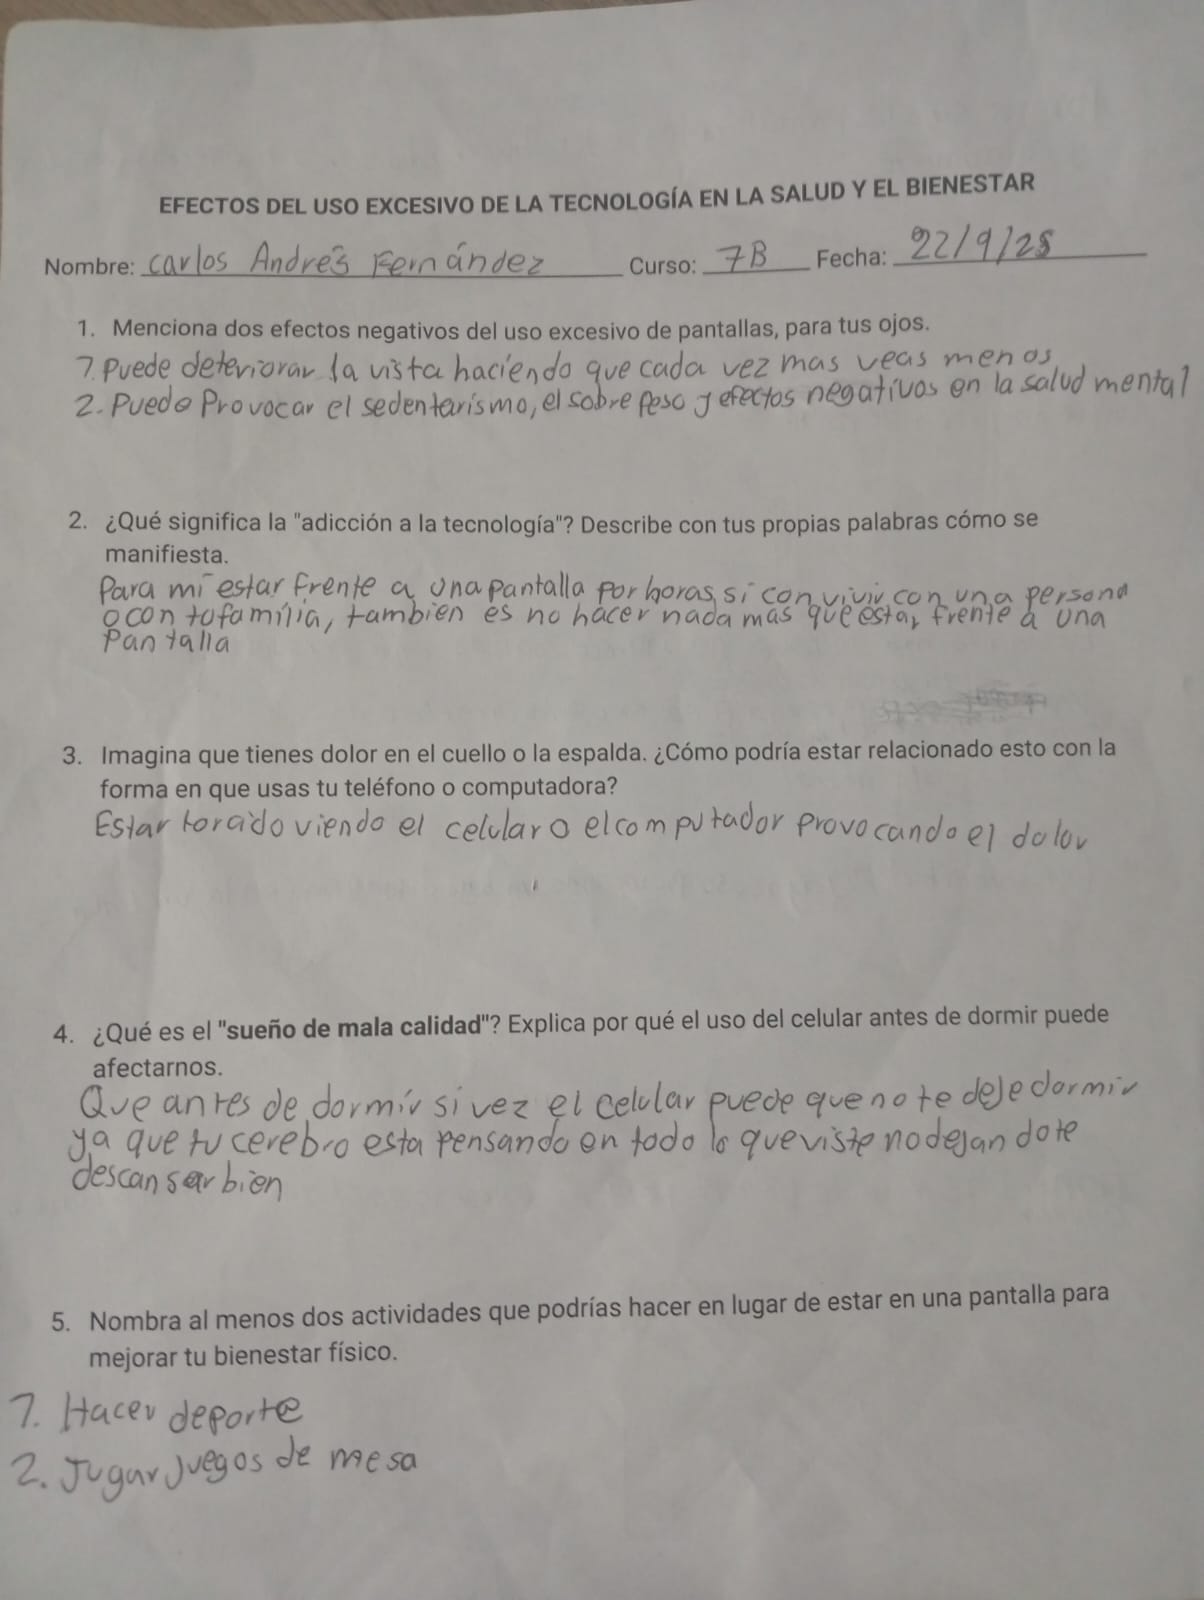 EFECTOS DEL USO EXCESIVO DE LA TECNOLOGÍA EN LA SALUD Y EL BIENESTAR
Nombre: Carlos Andrés Fernández Curso: 7B Fecha: 22/9/25
1. Menciona dos efectos negativos del uso excesivo de pantallas, para tus ojos.
1. Puede deteriorar la vista haciendo que cada vez mas veas menos
2. Puede Provocar el sedentarismo, el sobre peso y efectos negativos en la salud mental
2. ¿Qué significa la "adicción a la tecnología"? Describe con tus propias palabras cómo se
manifiesta.
Para mi estar frente a una pantalla por horas, si convivir con una persona
o con tu familia, tambien es no hacer nada mas que estar frente a una
Pantalla
3. Imagina que tienes dolor en el cuello o la espalda. ¿Cómo podría estar relacionado esto con la
forma en que usas tu teléfono o computadora?
Estar torcido viendo el celular o el computador provocando el dolor
4. ¿Qué es el "sueño de mala calidad"? Explica por qué el uso del celular antes de dormir puede
afectarnos.
Que antes de dormir si vez el celular puede que no te deje dormir
ya que tu cerebro esta pensando en todo lo que viste no dejandote
descansar bien
5. Nombra al menos dos actividades que podrías hacer en lugar de estar en una pantalla para
mejorar tu bienestar físico.
1. Hacer deporte
2. Jugar juegos de mesa